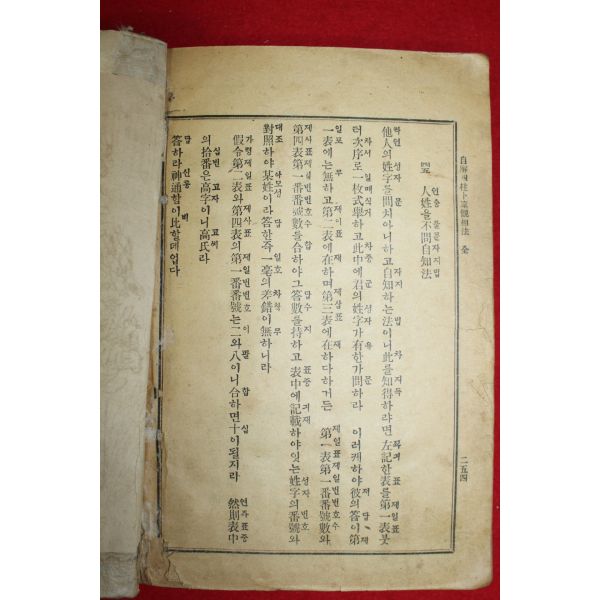 自解四柱卜筮觀相法 全
二五四
四五 人姓을不問自知法
他人의姓字를問치아니하고自知하는法이니此를知得하랴면左記한表를第一表붓
터次序로一枚式擧하고此中에君의姓字가有한가問하라 이러케하야彼의答이第
一表에는無하고第二表에在하며第三表에在하다하거든 第一表第一番番號數와
第四表第一番番號數를合하야그答數를持하고表中에記載하야잇는姓字의番號와
對照하야某姓이라答한즉一毫의差錯이無하니라
假令第二表와第四表의第一番番號는二와八이니合하면十이될지라 然則表中
의拾番은高字이니高氏라
答하라神通할이比할데업다